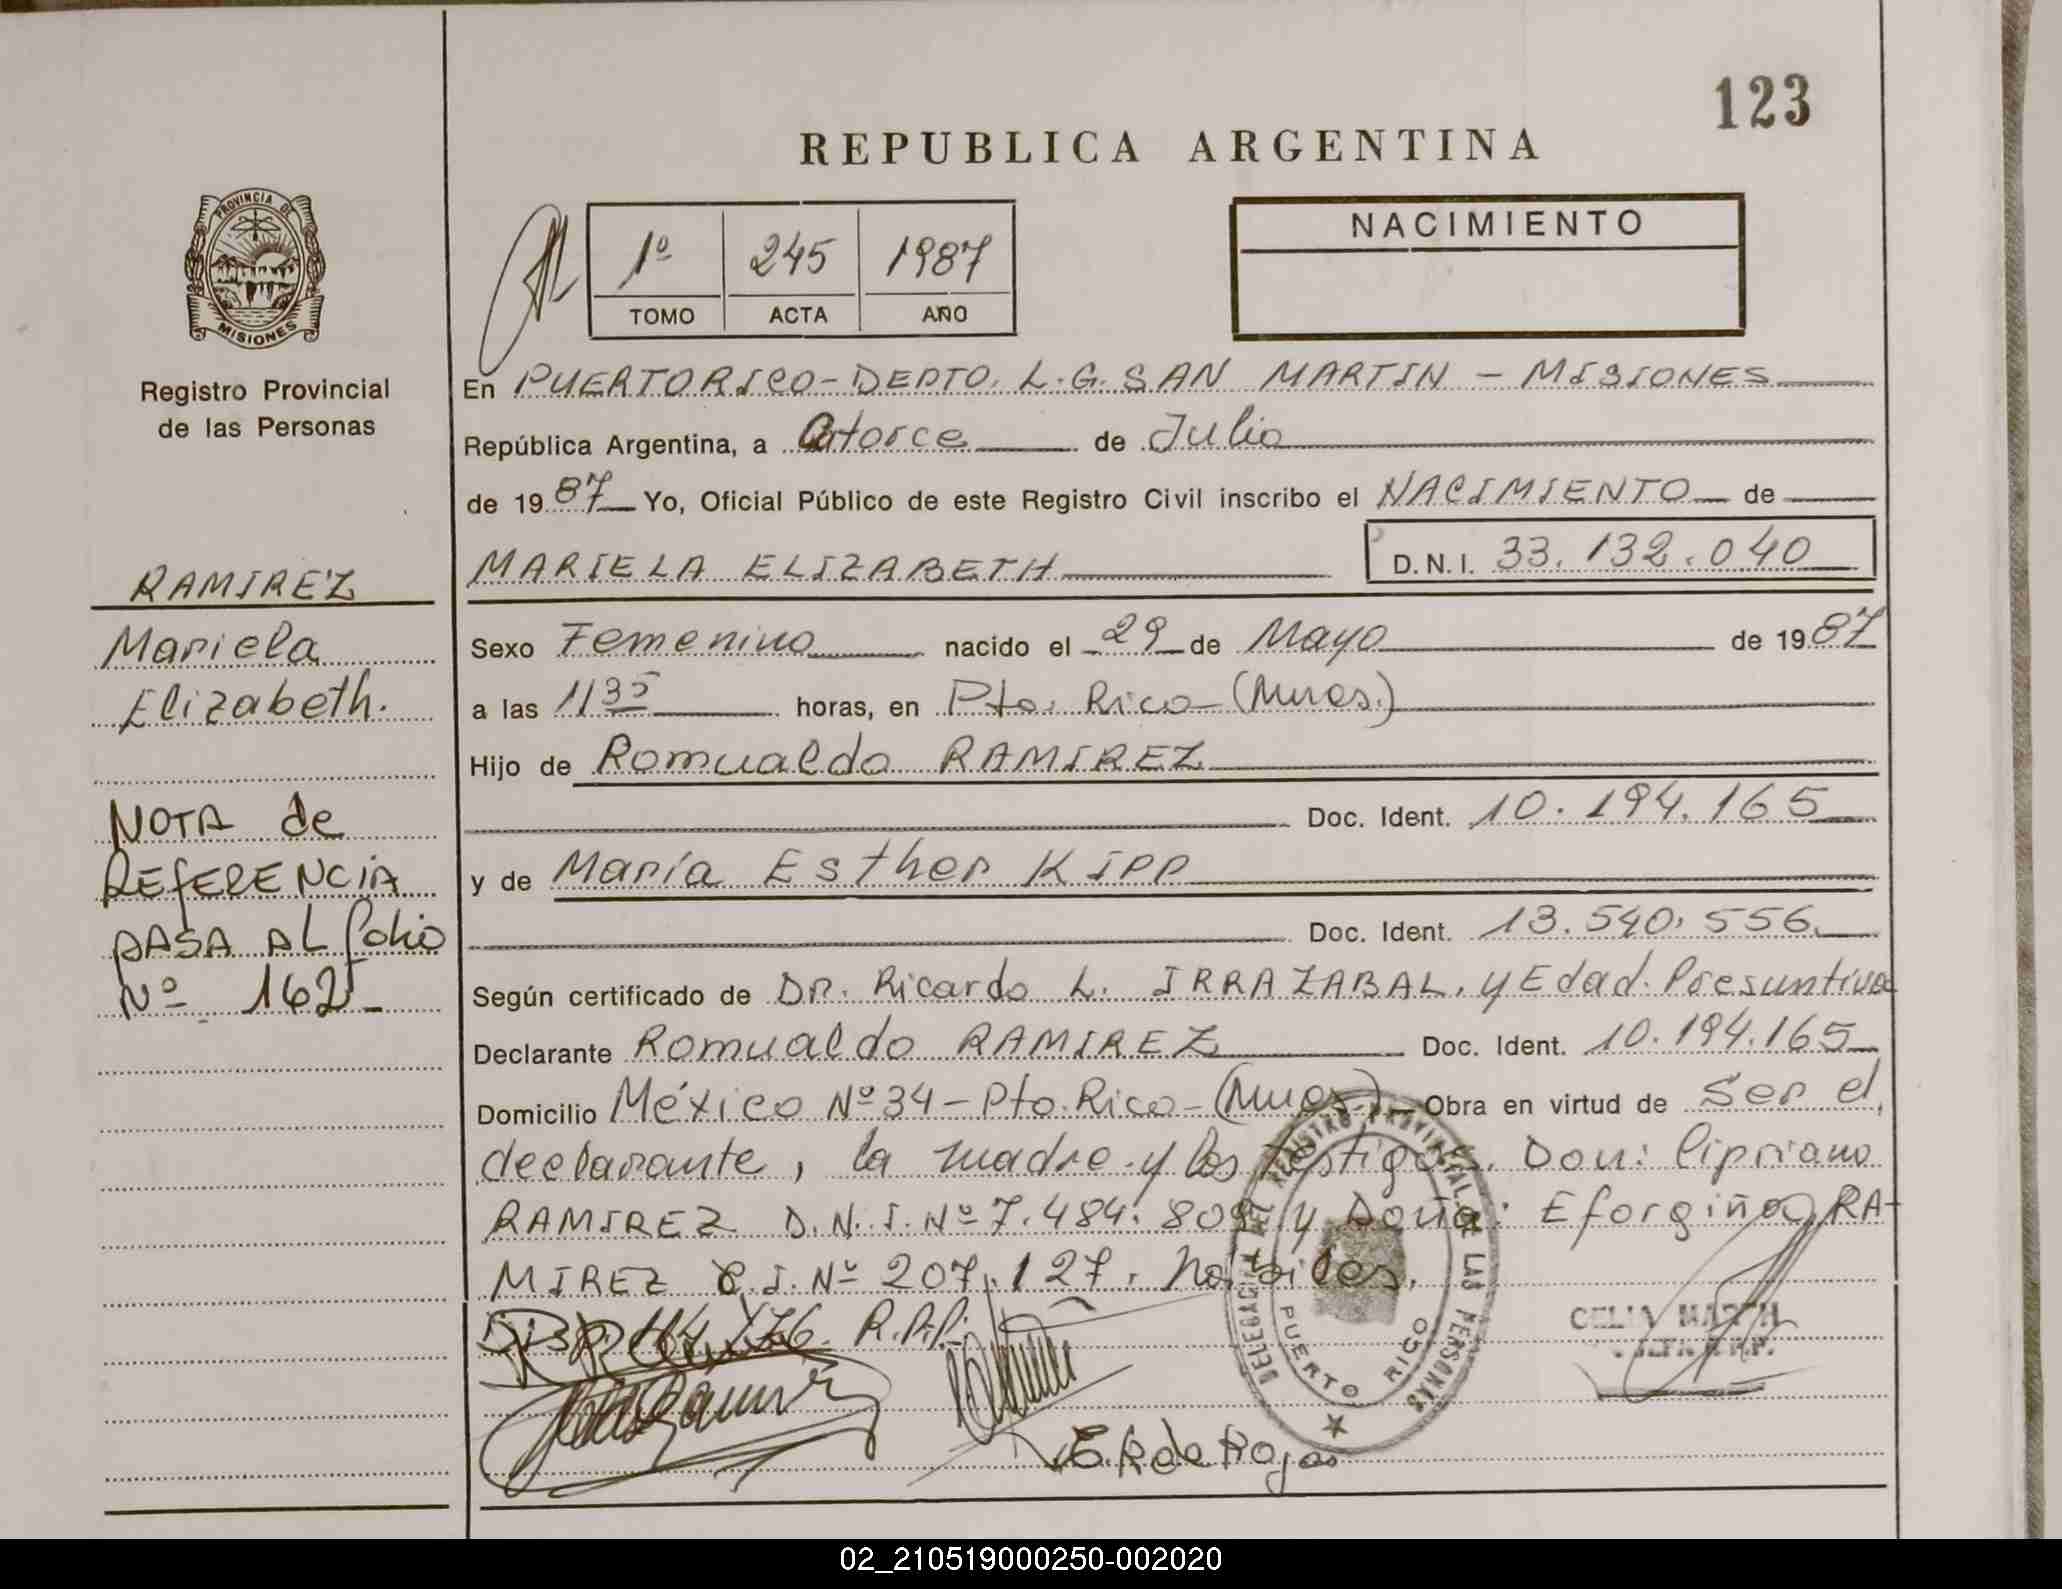 123
REPUBLICA ARGENTINA
PROVINCIA DE
MISIONES
Registro Provincial
de las Personas
1º 245 1987
TOMO ACTA AÑO
NACIMIENTO
En PUERTO RICO - DEPTO. L.G. SAN MARTIN - MISIONES
República Argentina, a Catorce de Julio
de 1987 Yo, Oficial Público de este Registro Civil inscribo el NACIMIENTO de
MARIELA ELIZABETH D.N.I. 33.132.040
RAMIREZ
Mariela
Elizabeth.
NOTA de
REFERENCIA
PASA AL folio
Nº 162-
Sexo Femenino nacido el 29 de Mayo de 1987
a las 11 35 horas, en Pto. Rico - (Mnes.)
Hijo de Romualdo RAMIREZ
Doc. Ident. 10.194.165
y de María Esther KIPP
Doc. Ident. 13.540.556
Según certificado de Dr. Ricardo L. IRRAZABAL. y Edad Presuntiva
Declarante Romualdo RAMIREZ Doc. Ident. 10.194.165
Domicilio México Nº 34 - Pto. Rico - (Mnes.) - Obra en virtud de Ser el
declarante, la madre y los testigos. Don: Cipriano
RAMIREZ D.N.I. Nº 7.484.809 y Doña: Eforgiña RA-
MIREZ C.I. Nº 207.127. Habiles.
Disp. 114/76. R.P.P.
DELEGACION DEL REGISTRO PROVINCIAL DE LAS PERSONAS
PUERTO RICO
CELIA
E. R de Rojas
02_210519000250-002020